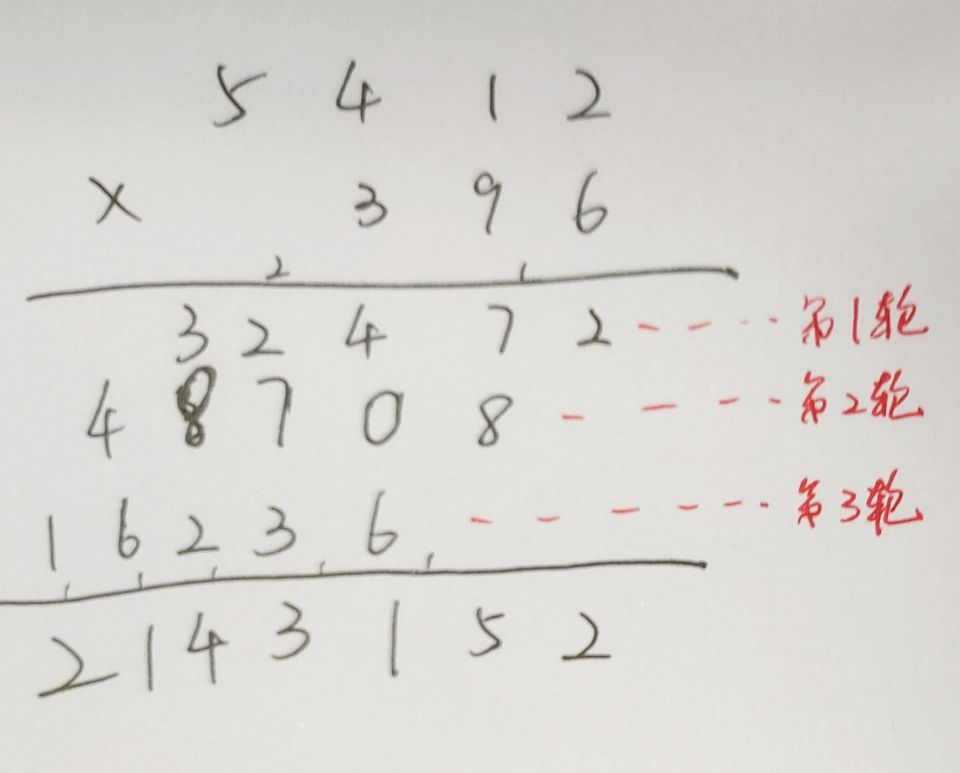 5 4 1 2
× 3 9 6
2 1
3 2 4 7 2 - - - - - 第1轮
4 8 7 0 8 - - - - 第2轮
1 6 2 3 6 - - - - - - 第3轮
1 1 1 1 1
2 1 4 3 1 5 2